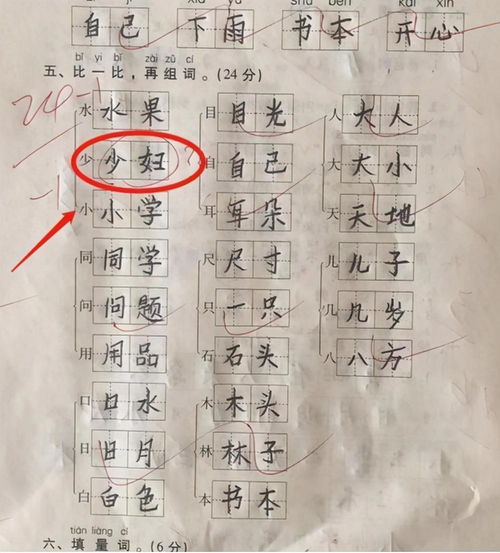 zì jǐ xià yǔ shū běn kāi xīn
自己 下雨 书本 开心
bǐ yi bǐ zài zǔ cí
五、比一比，再组词。(24分)
24-1
水 水果 目 目光 人 大人
少 少妇 自 自己 大 大小
-1
小 小学 耳 耳朵 天 天地
同 同学 尺 尺寸 儿 儿子
问 问题 只 一只 几 几岁
用 用品 石 石头 八 八方
口 口水 木 木头
日 日月 林 林子
白 白色 本 书本
tián liàng cí
六、填量词。(6分)